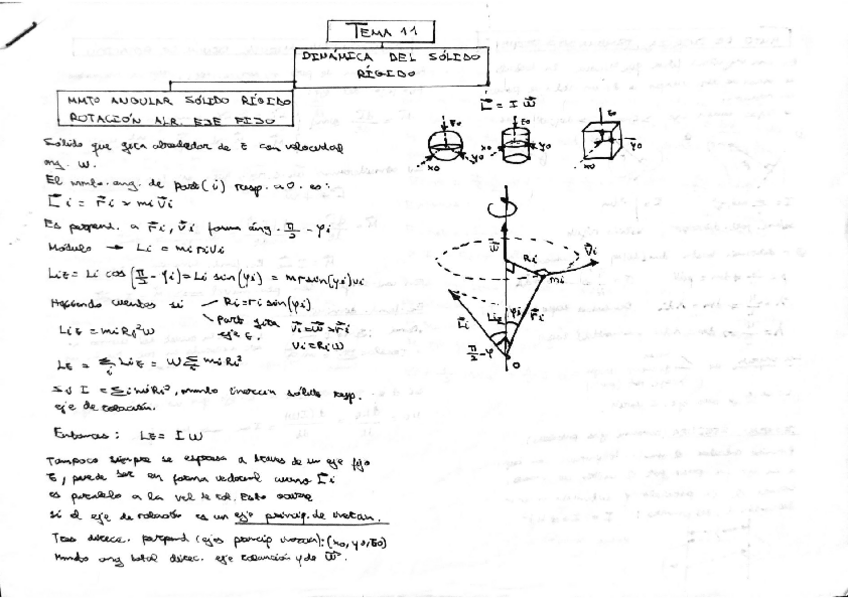 TEMA 11
DINÁMICA DEL SÓLIDO
RÍGIDO
MMTO ANGULAR SÓLIDO RÍGIDO
ROTACIÓN ALR. EJE FIJO
L⃗ = I w⃗
Sólido que gira alrededor de z con velocidad
ang. w.
El mmto. ang. de part(i) resp. a O. es:
L⃗i = r⃗i × mi v⃗i
Es perpend. a r⃗i, v⃗i forma áng. π/2 - φi
Módulo → Li = mi ri vi
Liz = Li cos(π/2 - φi) = Li sin(φi) = mr sin(φi) vi
Haciendo cuentas si
Ri = ri sin(φi)
part. gira
eje z.
v⃗i = w⃗ × r⃗i
vi = Ri w
Liz = mi Ri² w
Lz = Σi Liz = w Σi mi Ri²
Si I = Σi mi Ri², mmto inercia sólido resp.
eje de rotación.
Entonces: Lz = I w
Tampoco siempre se expresa a través de un eje fijo
z, puede ser en forma vectorial cuando L⃗i
es paralelo a la vel de rot. Esto ocurre
si el eje de rotación es un eje princip. de inercia.
Tres direcc. perpend (ejes princip inercia): (x0, y0, z0)
Mmto ang total direc. eje rotación y de w⃗.
z0
x0
y0
z0
x0
y0
z0
x0
y0
w⃗
Ri
v⃗i
mi
L⃗i
Liz
φi
r⃗i
π/2 - φ
O